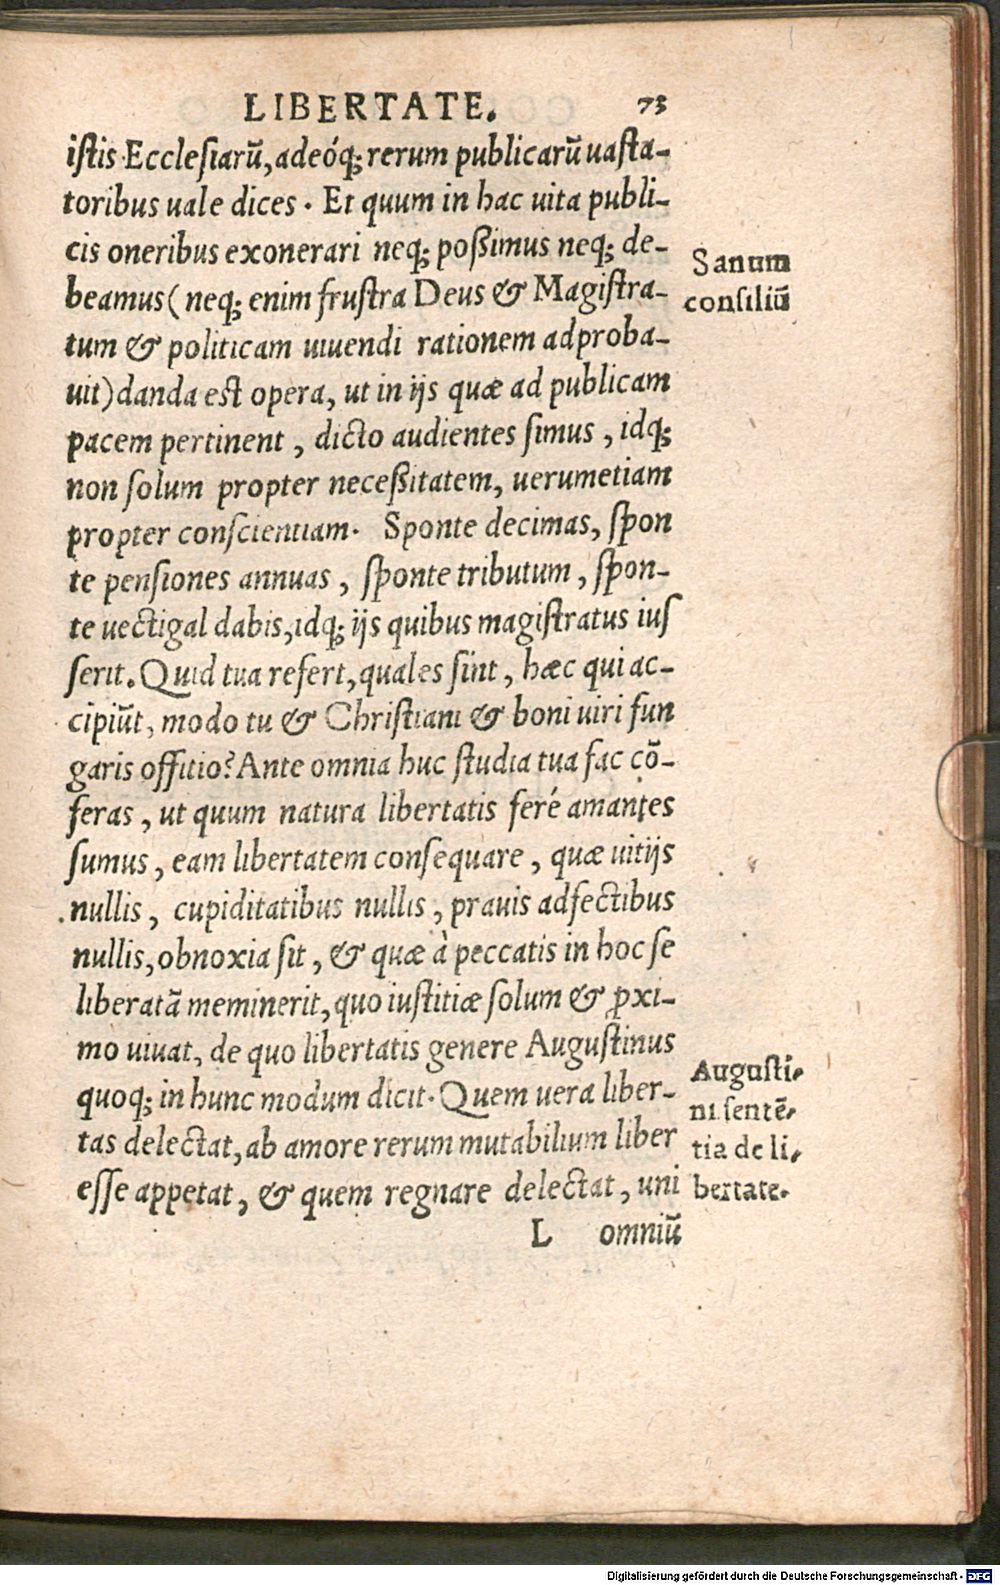 LIBERTATE. 73
istis Ecclesiarũ, adeóq; rerum publicarũ uasta-
toribus uale dices. Et quum in hac uita publi-
cis oneribus exonerari neq; poßimus neq; de-
beamus (neq; enim frustra Deus & Magistra-
tum & politicam uiuendi rationem adproba-
uit) danda est opera, ut in ijs quæ ad publicam
pacem pertinent, dicto audientes simus, idq;
non solum propter neceßitatem, uerumetiam
propter conscientiam. Sponte decimas, spon
te pensiones annuas, sponte tributum, spon-
te uectigal dabis, idq; ijs quibus magistratus ius
serit. Quid tua refert, quales sint, hæc qui ac-
cipiũt, modo tu & Christiani & boni uiri fun
garis offitio? Ante omnia huc studia tua fac cõ-
feras, ut quum natura libertatis feré amantes
sumus, eam libertatem consequare, quæ uitijs
nullis, cupiditatibus nullis, prauis adfectibus
nullis, obnoxia sit, & quæ à peccatis in hoc se
liberatã meminerit, quo iustitiæ solum & ꝓxi-
mo uiuat, de quo libertatis genere Augustinus
quoq; in hunc modum dicit. Quem uera liber-
tas delectat, ab amore rerum mutabilium liber
esse appetat, & quem regnare delectat, uni
L omniũ
Sanum
consiliũ
Augusti-
ni sentẽ-
tia de li-
bertate.
Digitalisierung gefördert durch die Deutsche Forschungsgemeinschaft - DFG